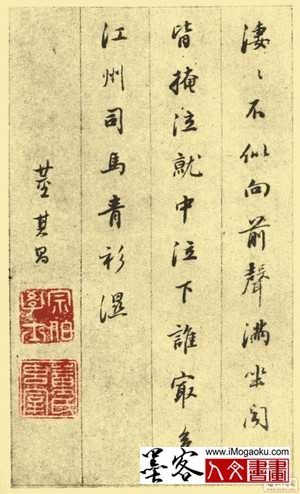 淒〻不似向前聲滿坐聞
皆掩泣就中泣下誰寂多
江州司馬青衫濕
董其昌
墨客
www.iMogaoku.com
人文書畫